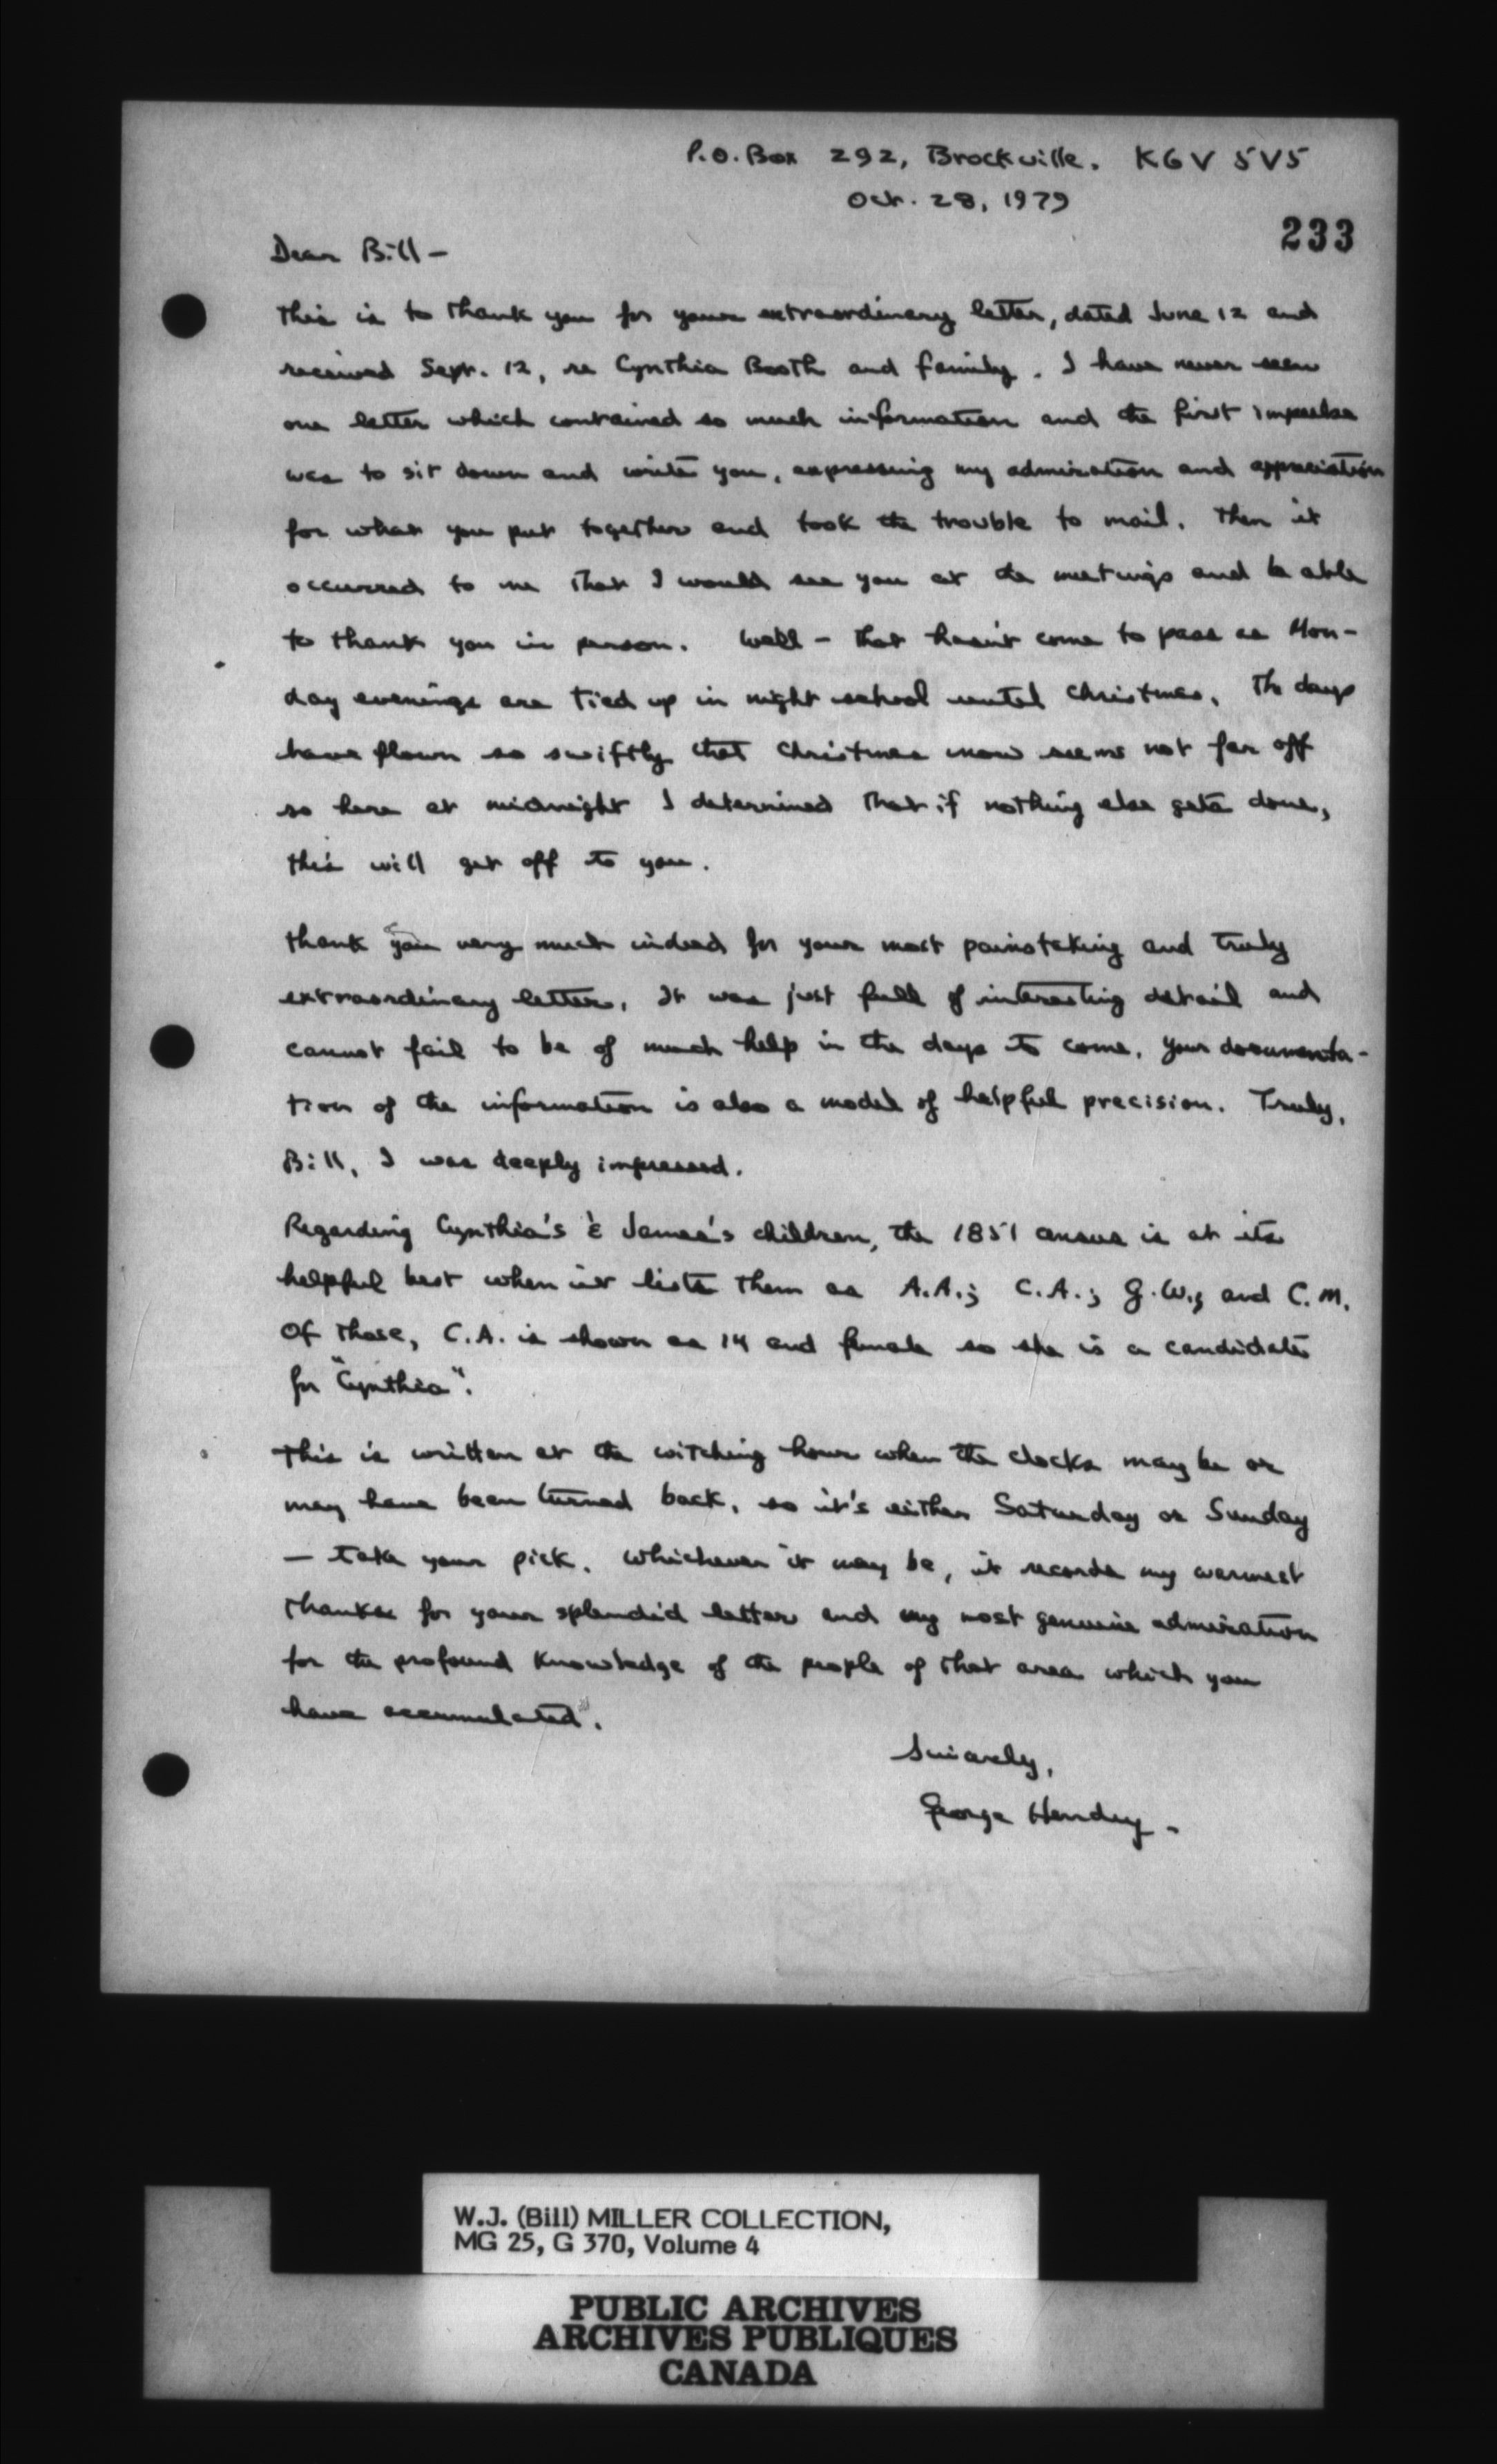 P.O. Box 292, Brockville. K6V 5V5
Oct. 28, 1979
233
Dear Bill –
This is to thank you for your extraordinary letter, dated June 12 and
received Sept. 12, re Cynthia Booth and family. I have never seen
one letter which contained so much information and the first impulse
was to sit down and write you, expressing my admiration and appreciation
for what you put together and took the trouble to mail. Then it
occurred to me that I would see you at the meetings and be able
to thank you in person. Well – that hasn't come to pass as Mon-
day evenings are tied up in night school until Christmas. The days
have flown so swiftly that Christmas now seems not far off
so here at midnight I determined that if nothing else gets done,
this will get off to you.
Thank you very much indeed for your most painstaking and truly
extraordinary letter. It was just full of interesting detail and
cannot fail to be of much help in the days to come. Your documenta-
tion of the information is also a model of helpful precision. Truly,
Bill, I was deeply impressed.
Regarding Cynthia's & James's children, the 1851 census is at its
helpful best when it lists them as A.A.; C.A.; G.W.; and C.M.
Of those, C.A. is shown as 14 and female so she is a candidate
for "Cynthia".
This is written at the witching hour when the clocks may be or
may have been turned back, so it's either Saturday or Sunday
— take your pick. Whichever it may be, it records my warmest
thanks for your splendid letter and my most genuine admiration
for the profound knowledge of the people of that area which you
have accumulated.
Sincerely,
George Hendry.
W.J. (Bill) MILLER COLLECTION,
MG 25, G 370, Volume 4
PUBLIC ARCHIVES
ARCHIVES PUBLIQUES
CANADA